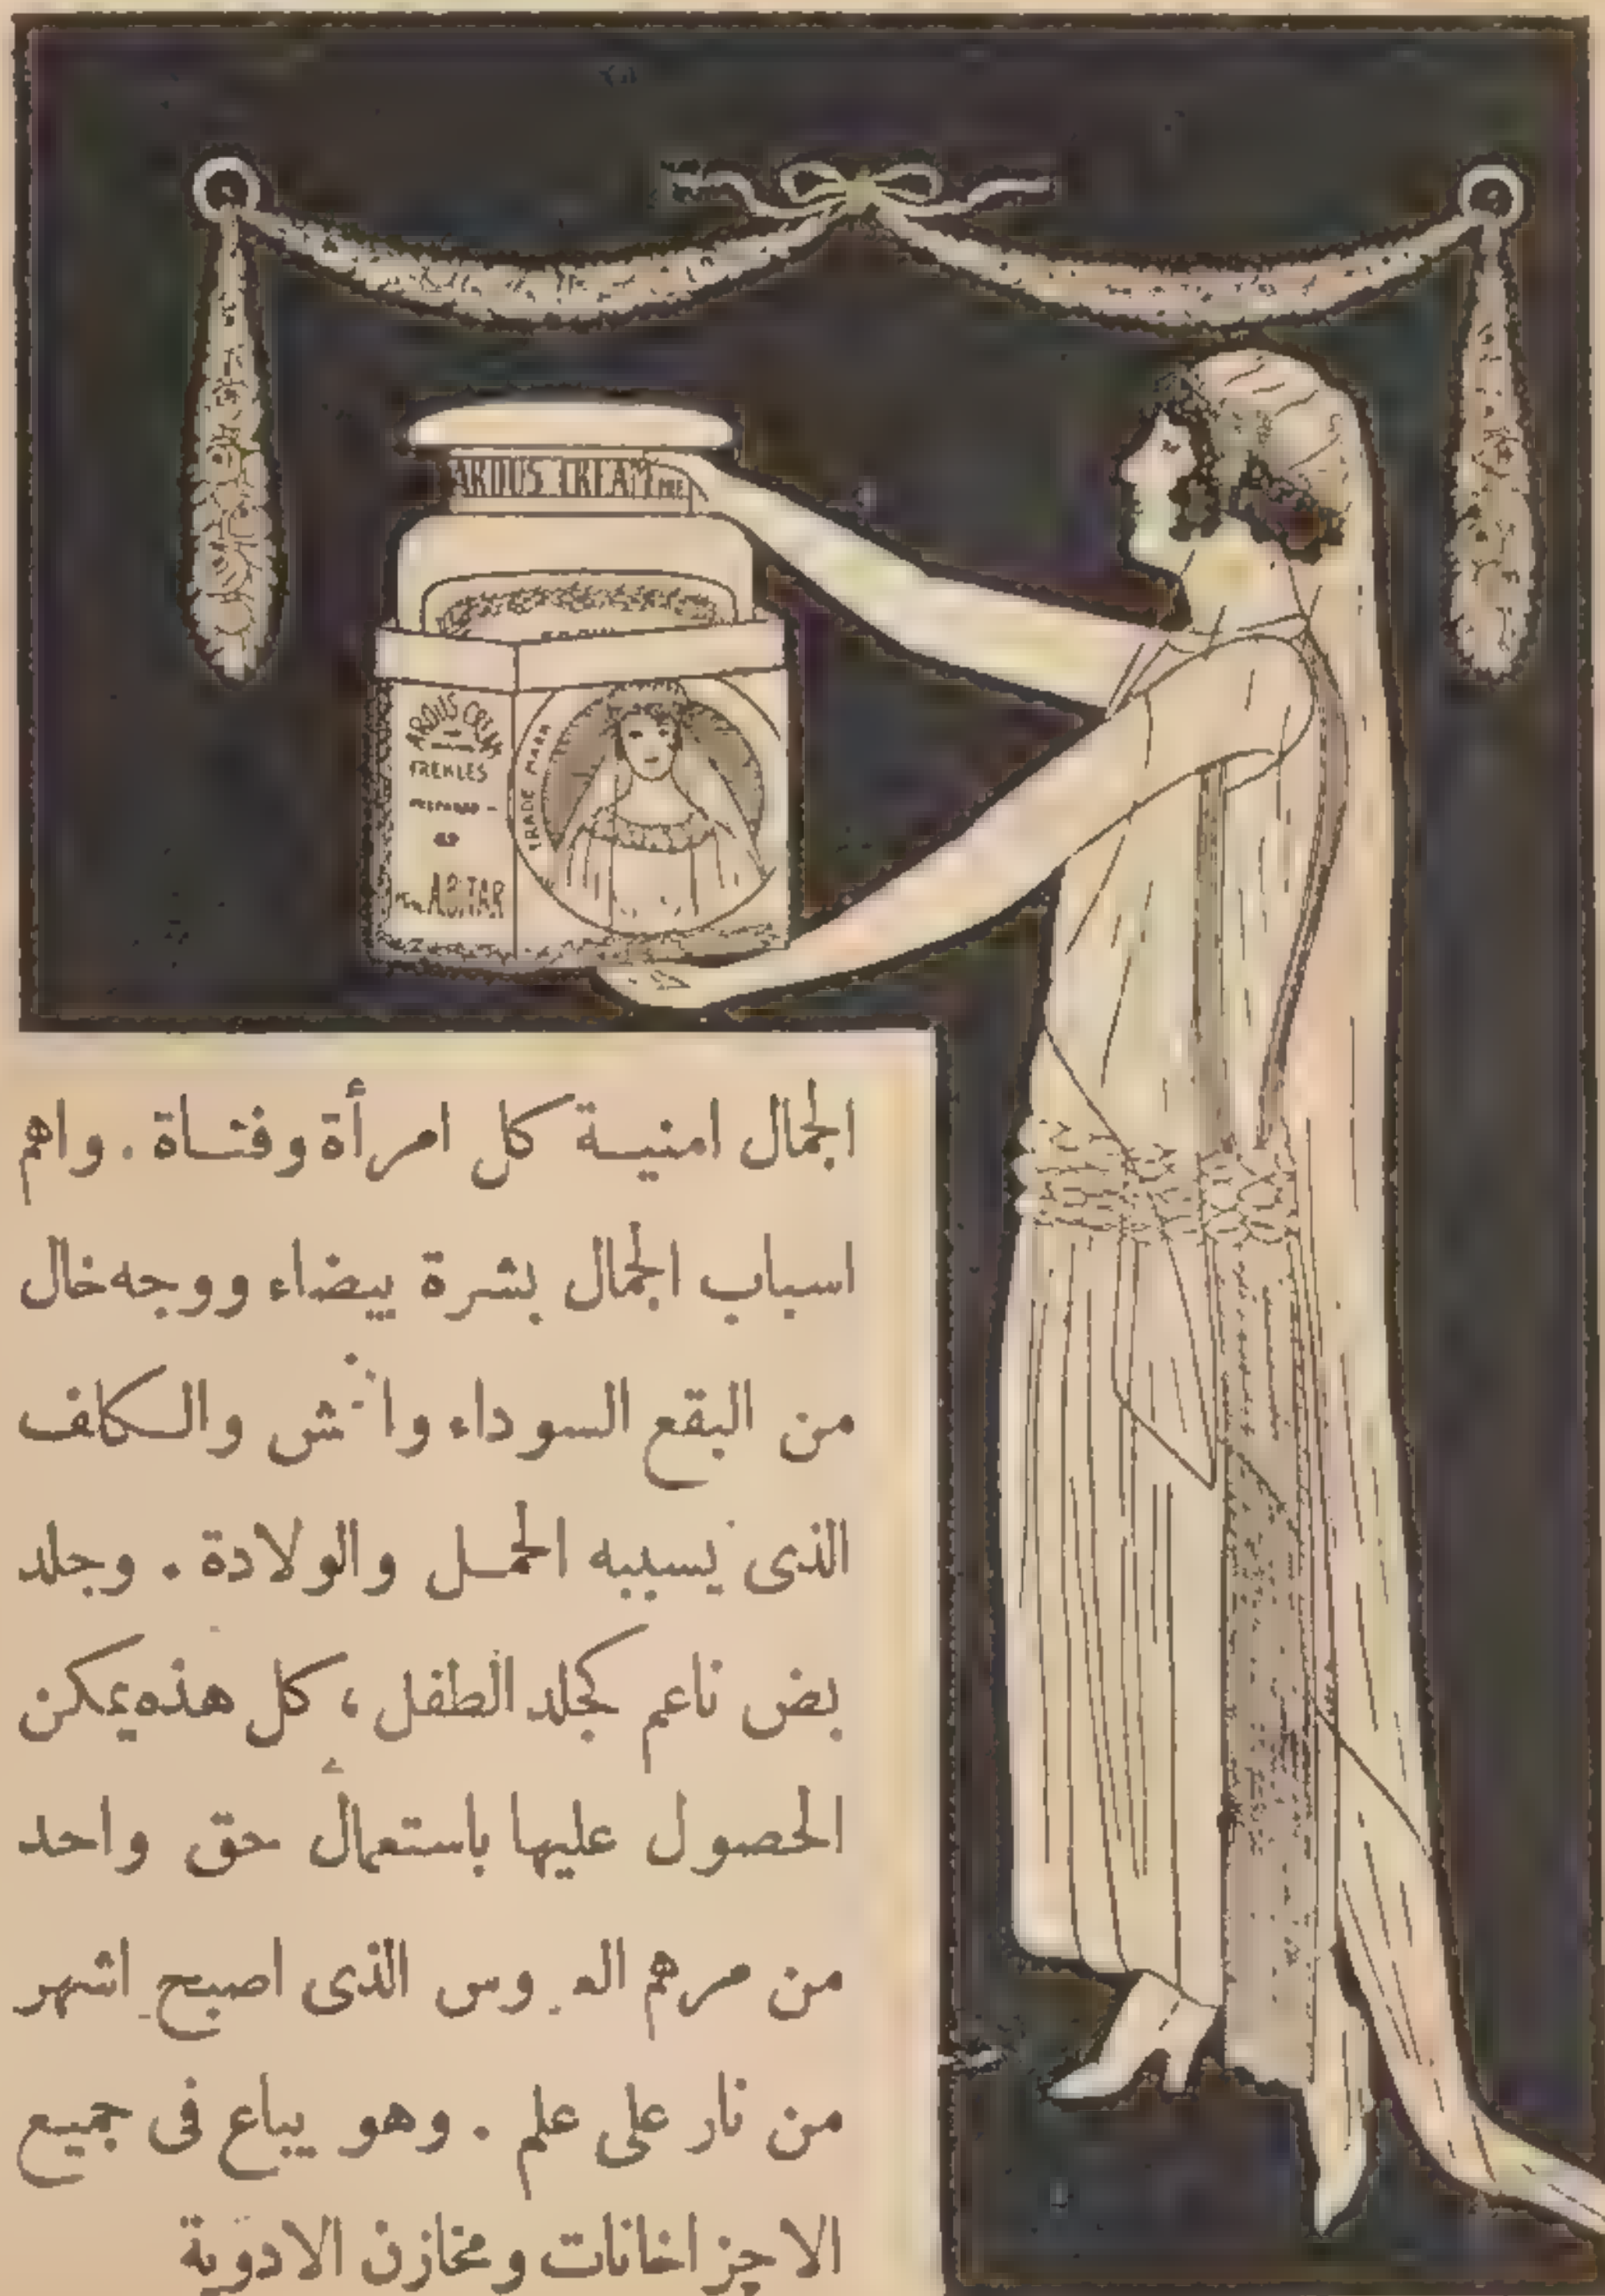 ARDUS CREAM
ARDUS CREAM
FREKLES
PREPARED
A.B.TAR
TRADE MARK
الجمال امنية كل امرأة وفتاة . واهم
اسباب الجمال بشرة بيضاء ووجه خال
من البقع السوداء والكلف
الذى يسببه الحمل والولادة . وجلد
بض ناعم كجلد الطفل ، كل هذه يمكن
الحصول عليها باستعمال حق واحد
من مرهم الذى اصبح اشهر
من نار على علم . وهو يباع فى جميع
الاجزاخانات ومخازن الادوية